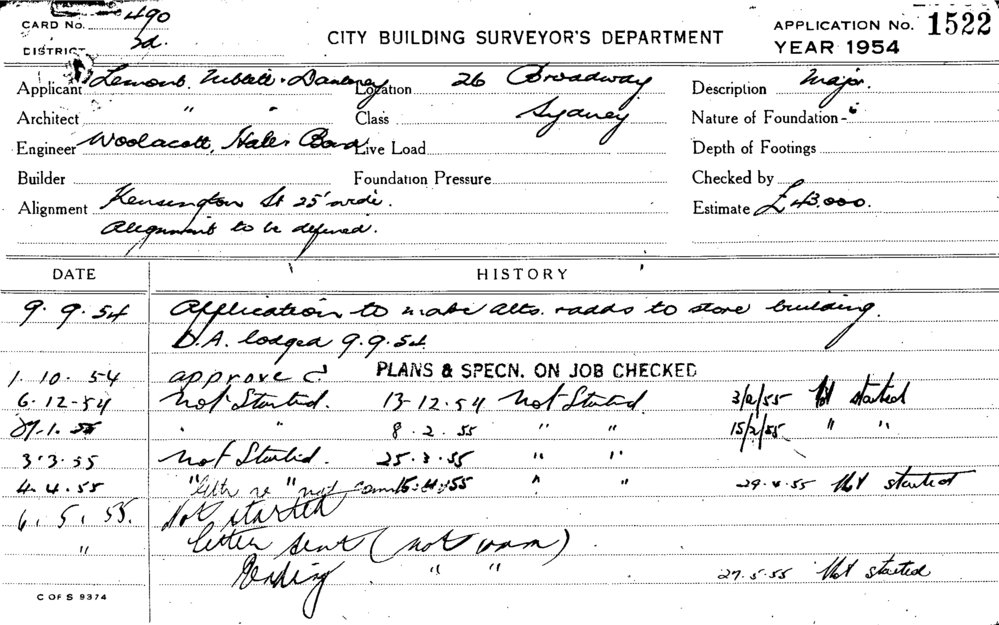 CARD NO. 490
DISTRICT Sd.
CITY BUILDING SURVEYOR'S DEPARTMENT
APPLICATION NO. 1522
YEAR 1954
Applicant Location 26 Broadway Description Major.
Architect " " Class Sydney Nature of Foundation
Engineer Woolacott, Hale & Bond Live Load Depth of Footings
Builder Foundation Pressure Checked by
Alignment Kensington St 25' wide. Estimate £43,000.
Alignment to be defined.
DATE HISTORY
9. 9. 54 Application to make alts. & adds to store building.
D.A. lodged 9.9.54.
1. 10. 54 approved PLANS & SPECN. ON JOB CHECKED
6-12-54 Not Started. 13-12-54 Not Started. 3/2/55 Not started
1. 55 " " 8. 2. 55 " " 15/2/55 " "
3.3.55 Not Started. 25.3.55 " "
4.4.55 "letter re "not com 15.4.55 " " 29.4.55 Not started
6. 5. 55. Not started
" letter sent (not comm)
Pending " " 27.5.55 Not started
C OF S 9374